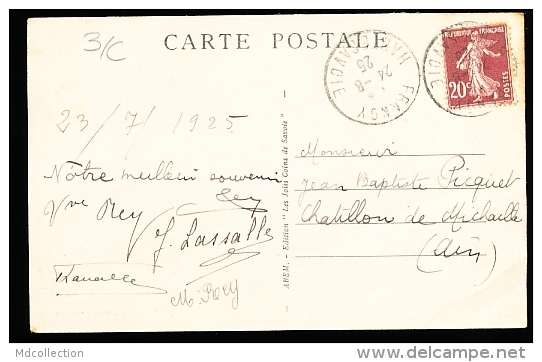 3/C
CARTE POSTALE
FRANGY
HTE SAVOIE
24 - 8
25
REPUBLIQUE FRANÇAISE
20c
POSTES
23/7/1925
Nôtre meilleur souvenir
Vve Rey
J. Lassalle
M. Rey
AREM. - Edition "Les Jolis Coins de Savoie"
Monsieur
Jean Baptiste Picquet
Chatillon de Michaille
(Ain)
Mdcollection
www.delcampe.net